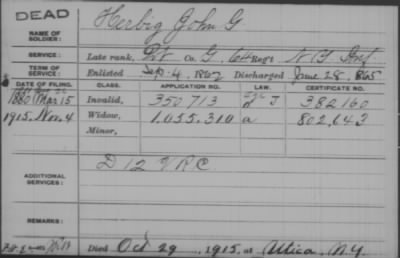 DEAD
NAME OF SOLDIER: Herbig John G
SERVICE: Late rank, Pvt Co. G, 64 Reg't N Y Inf
TERM OF SERVICE: Enlisted Sep. 4, 1862 Discharged June 28, 1865
DATE OF FILING. CLASS. APPLICATION NO. LAW. CERTIFICATE NO.
1880 Mar 15 Invalid, 350 713 J 382160
1915. Nov. 4 Widow, 1.055.310 a 802,643
Minor,
ADDITIONAL SERVICES: D 12 V R C.
REMARKS:
Died Oct 29, 1915, at Utica, N.Y.